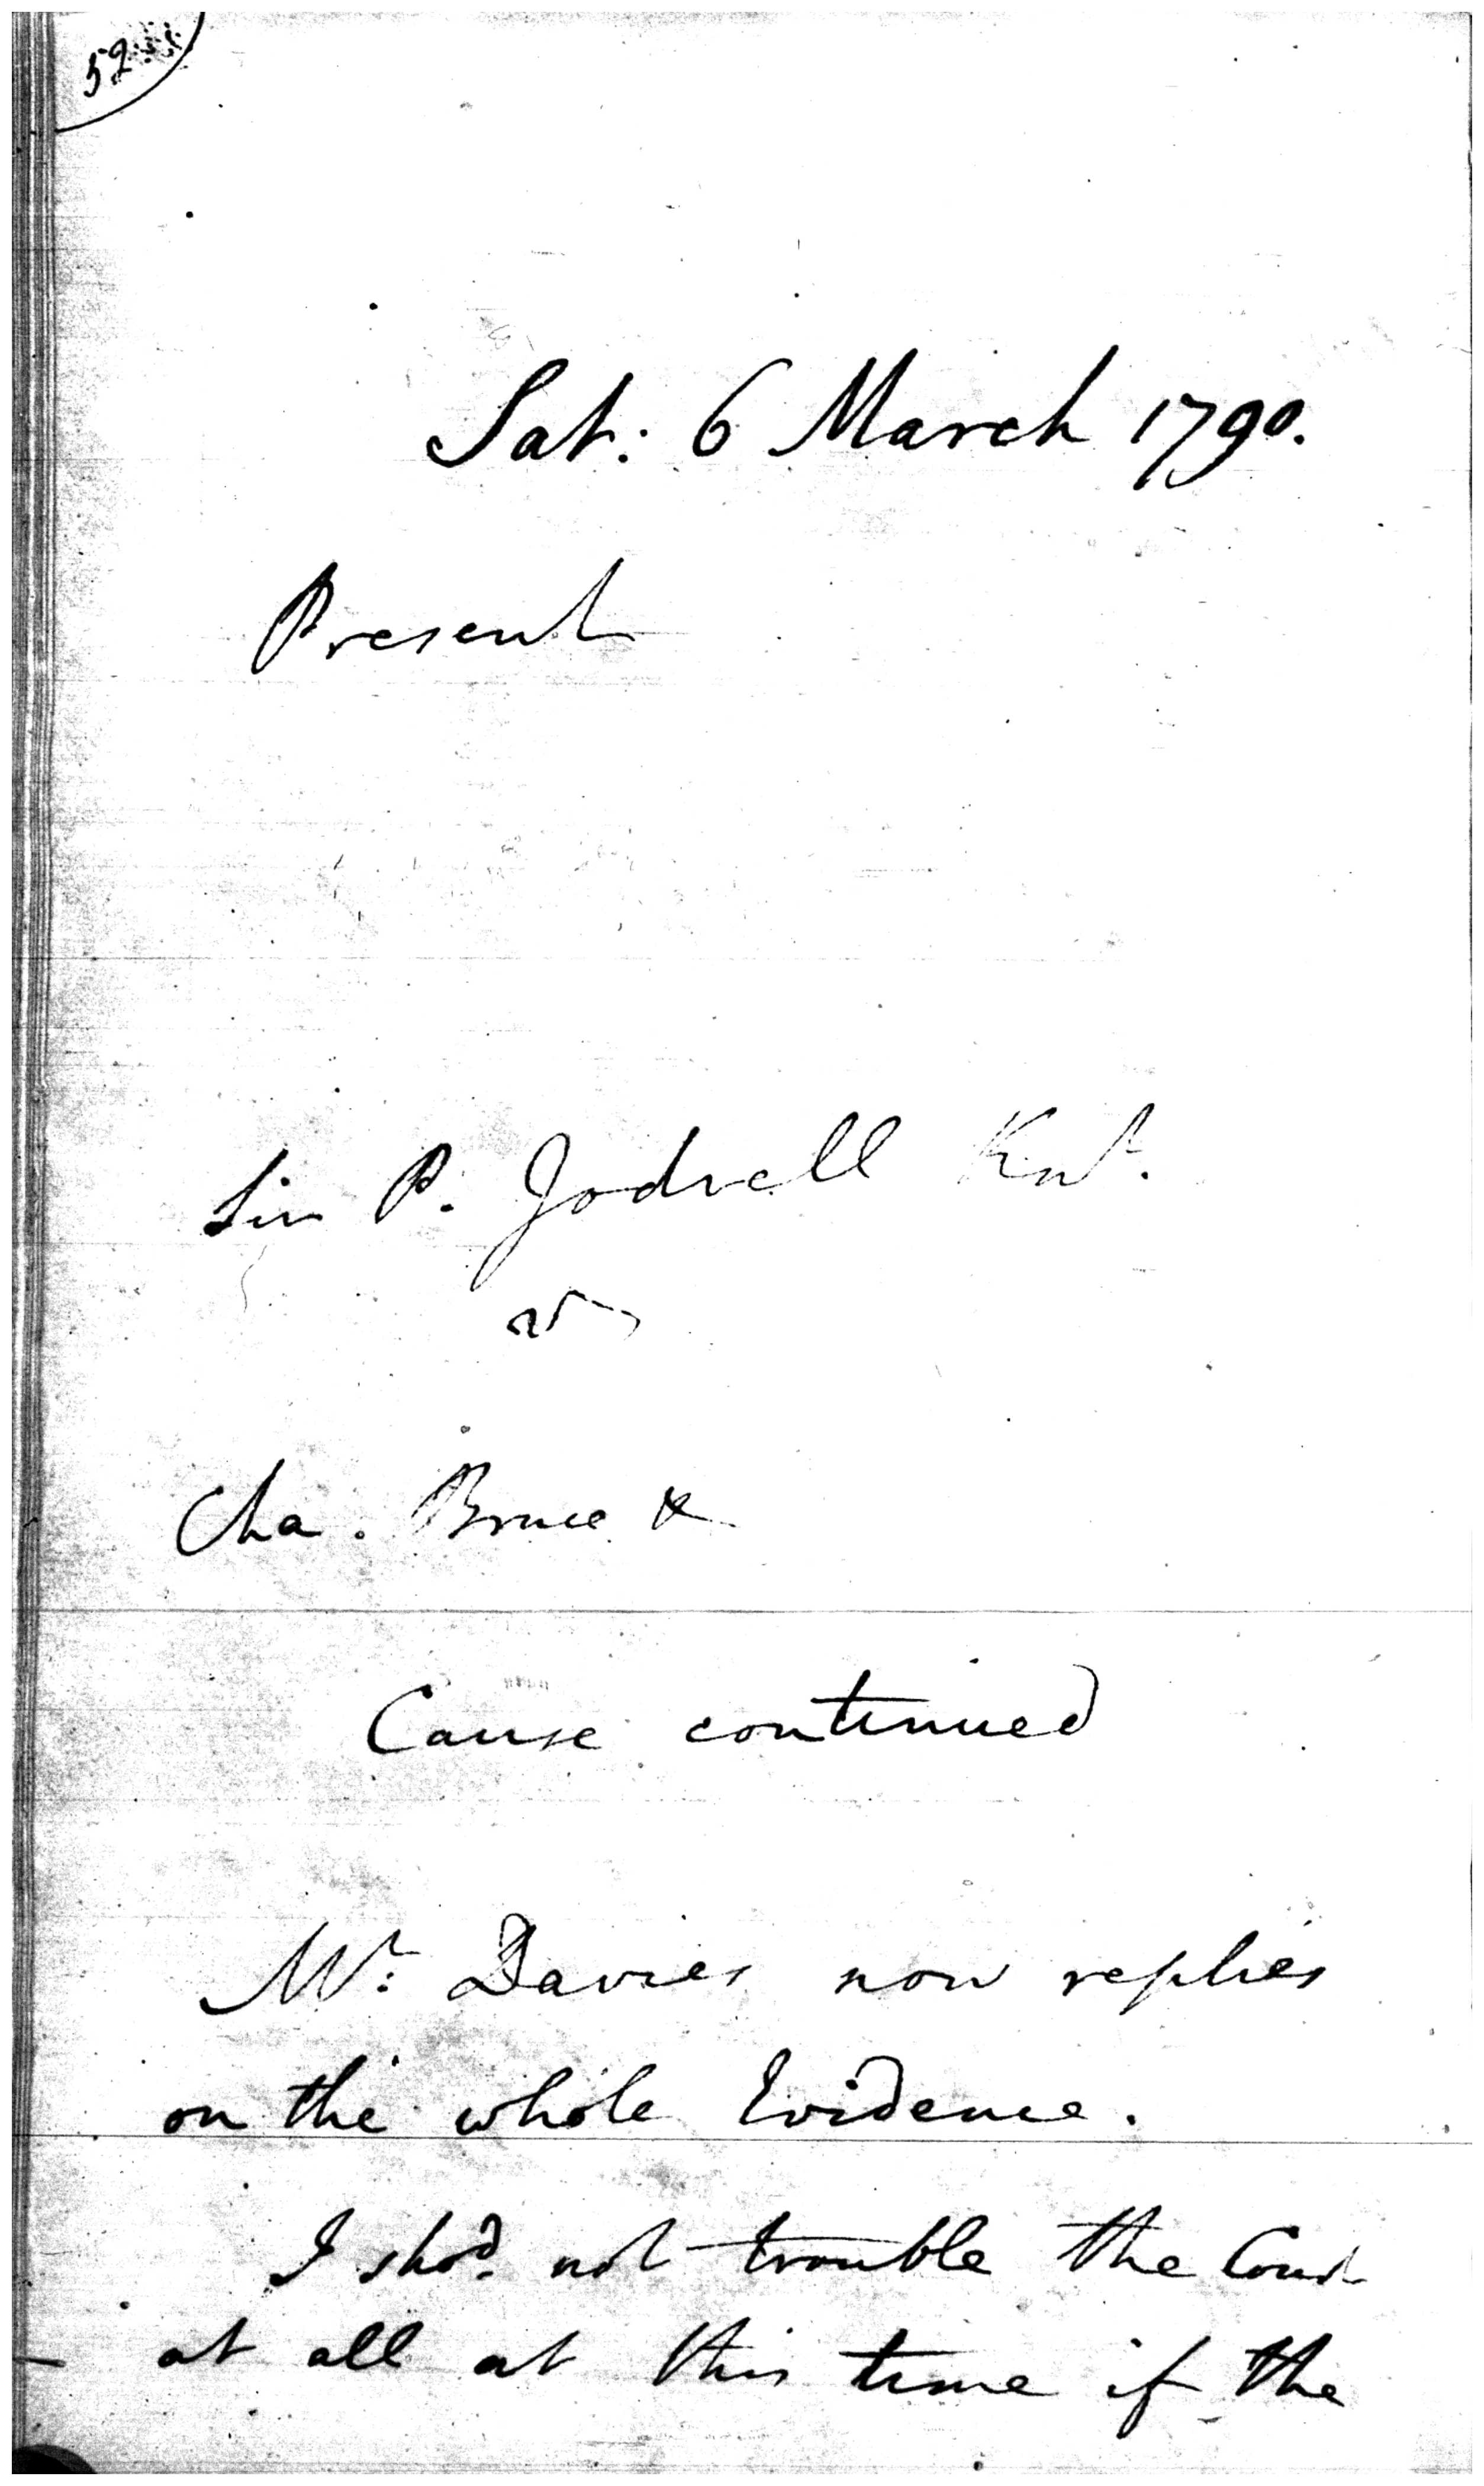 52
Sat: 6 March 1790.
Present
Sir P. Jodrell Knt.
v
Cha. Bruce &
Cause continued
Mr: Davies now replies
on the whole Evidence.
I shod. not trouble the Court
at all at this time if the